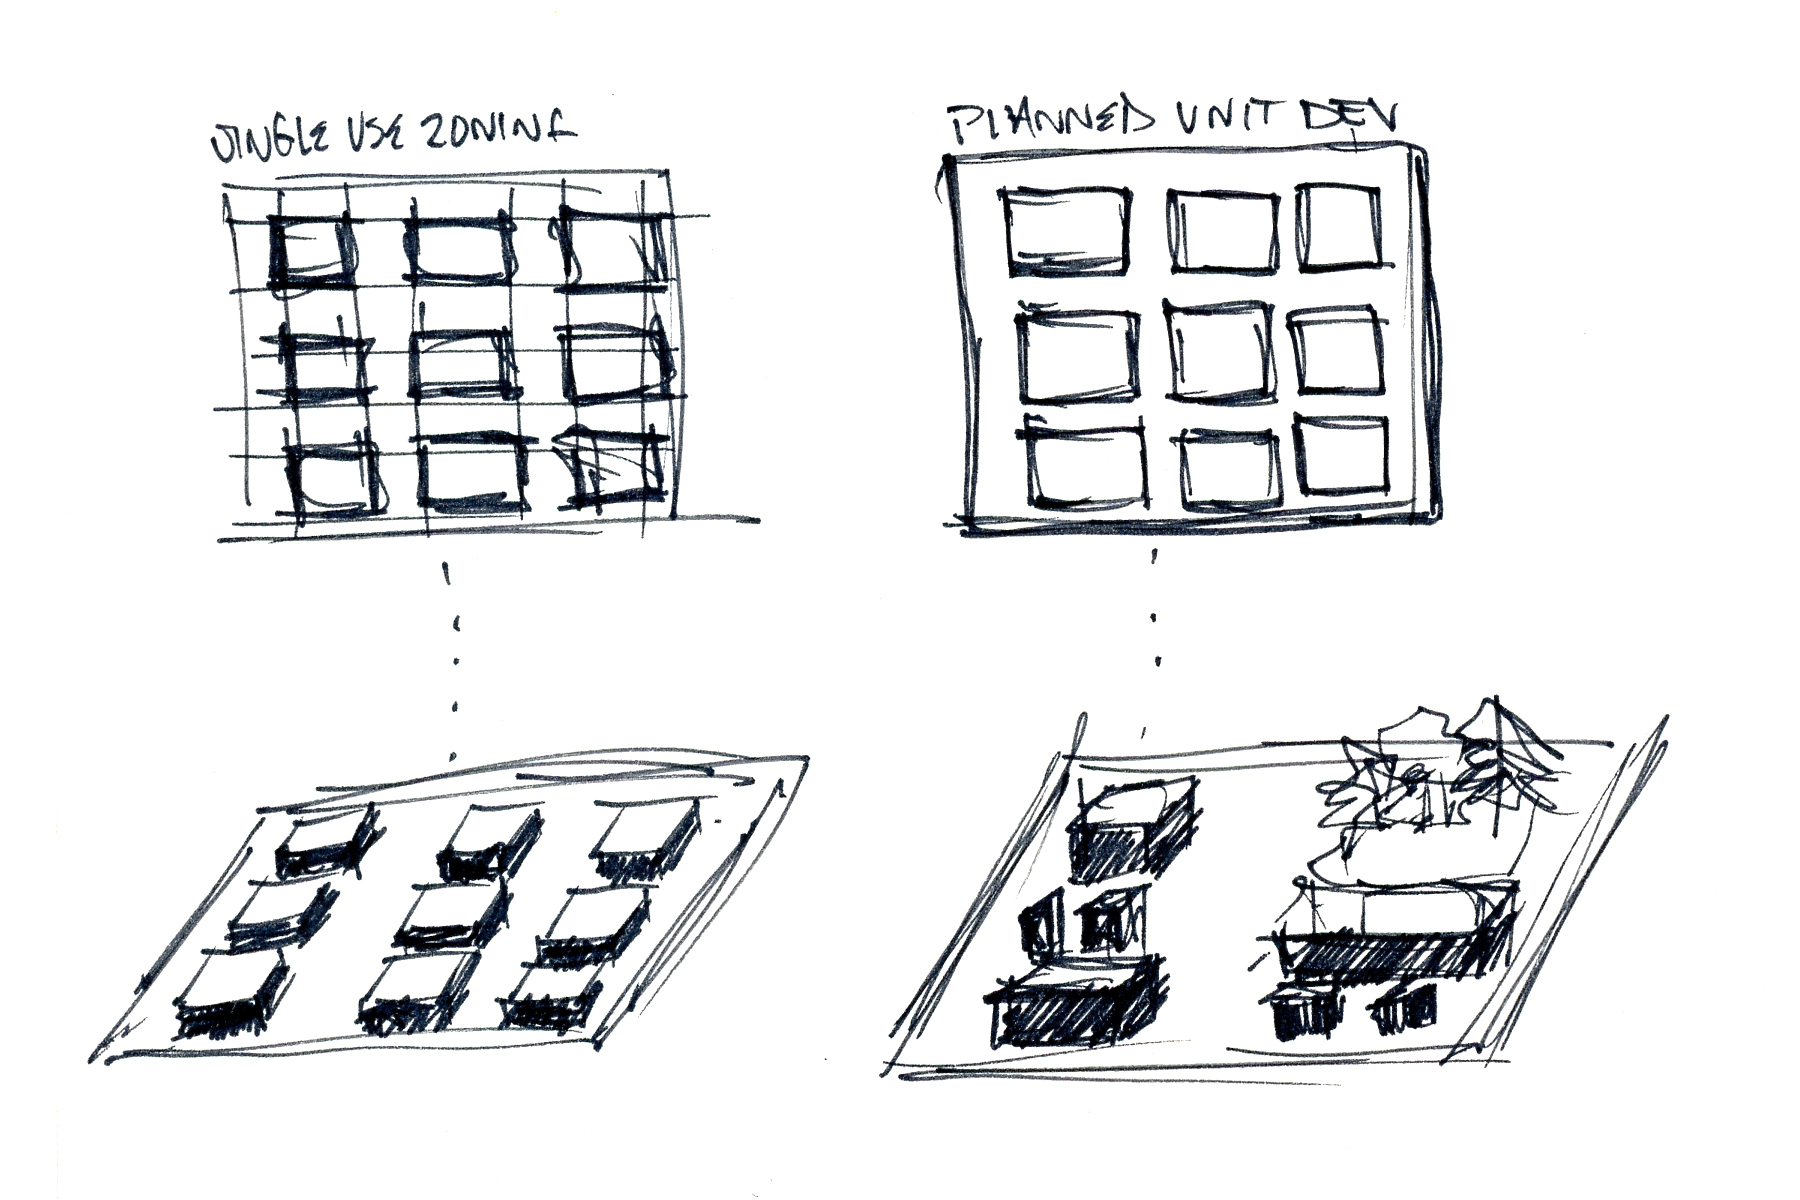 SINGLE USE ZONING
PLANNED UNIT DEV